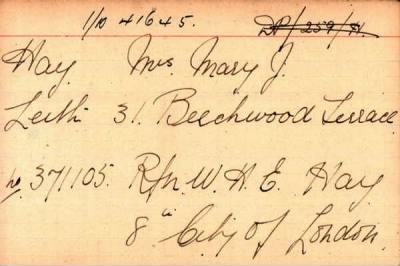 1/10 41645. DP/259/H.
Hay. Mrs Mary J.
Leith 31. Beechwood Terrace
No. 371105. Rfn. W. H. E. Hay
8th City of London.